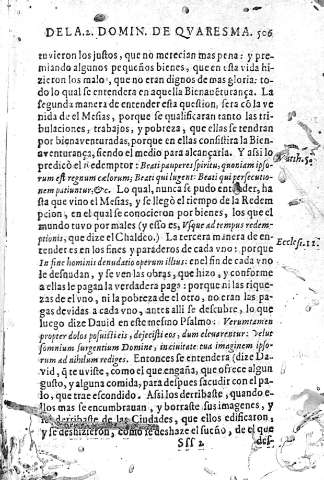 DE LA .2. DOMIN. DE QVARESMA. 506
tuvieron los justos, que no merecian mas pena: y pre-
miando algunos pequeños bienes, que en esta vida hi-
zieron los malos, que no eran dignos de mas gloria: to-
do lo qual se entendera en aquella Bienavẽturança. La
segunda manera de entender esta question, sera cõ la ve
nida de el Mesias, porque se qualificaran tanto las tri-
bulaciones, trabajos, y pobreza, que ellas se tendran
por bienaventuradas, porque en ellas consistira la Bien-
aventurança, siendo el medio para alcançarla. Y assi lo
predicò el redemptor: Beati pauperes spiritu, quoniam ipso-
rum est regnum cælorum; Beati qui lugent: Beati qui persecutio-
nem patiuntur, &c. Lo qual, nunca se pudo entender, ha
sta que vino el Mesias, y se llegò el tiempo de la Redem
pcion, en el qual se conocieron por bienes, los que el
mundo tuvo por males (y esso es, Vsque ad tempus redem-
ptionis, que dize el Chaldeo.) La tercera manera de en-
tender es en los fines y paraderos de cada vno: porque
In fine hominis denudatio operum illus: en el fin de cada vno
le desnudan, y se ven las obras, que hizo, y conforme
a ellas le pagan la verdadera paga: porque ni las rique-
zas de el vno, ni la pobreza de el otro, no eran las pa-
gas devidas a cada vno, antes alli se descubre, lo que
luego dize David en este mesmo Psalmo: Verumtamen
propter dolos posuisti eis, dejecisti eos, dum elevarentur: Velut
somnium surgentium Domine, in civitate tua imaginem ipso-
rum ad nihilum rediges. Entonces se entendera (dize Da-
vid, q̃ tuviste, como el que engaña, que ofrece algun
gusto, y alguna comida, para despues sacudir con el pa-
lo, que trae escondido. Assi los derribaste, quando e-
llos mas se encumbravan, y borraste sus imagenes, y
se derribaste de las Ciudades, que ellos edificaron,
y se deshizieron, como se deshaze el sueño, de el que
Sss 2 des-
Matth. 5.
Eccles. 11.